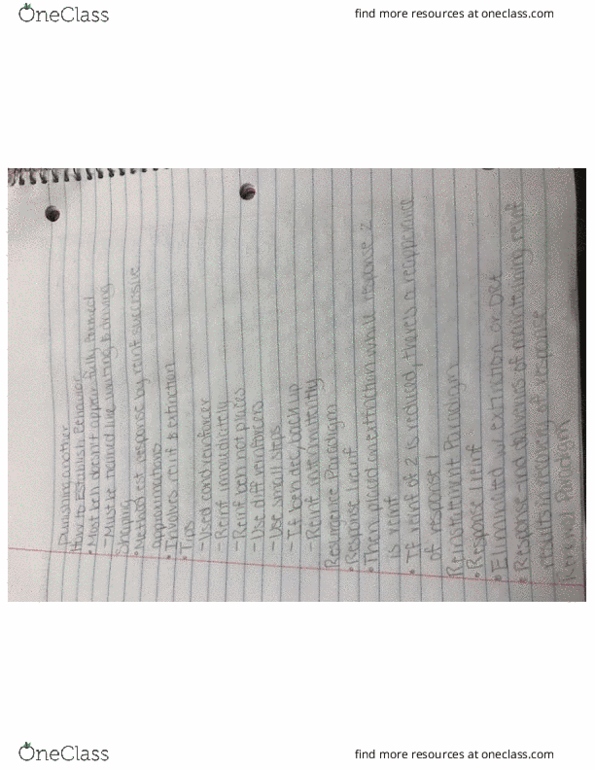 OneClass
find more resources at oneclass.com
Punishing another
How to Establish Behavior
• Most beh doesn't appear fully formed
- Must be trained like writing & driving
Shaping
• Method est response by reinf successive
approximations
• Involves reinf & extinction
• Tips
- Used cond reinforcer
- Reinf immediately
- Reinf beh not places
- Use diff reinforcers
- Use small steps
- If beh dec, back up
- Reinf intermittently
Resurgence Paradigm
• Response 1 reinf
• Then placed on extinction while response 2
is reinf
• If reinf of 2 is reduced, theres a reappearance
of response 1
Reinstatement Paradigm
• Response 1 reinf
• Eliminated w extinction or
• Response ind of maintaining reinf
results in recovery of response
Renewal Paradigm
OneClass
find more resources at oneclass.com